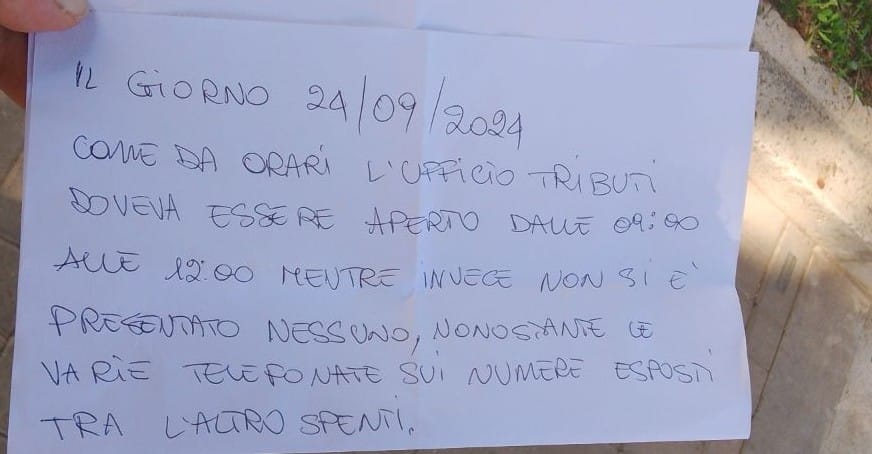 IL GIORNO 24/09/2024
COME DA ORARI L'UFFICIO TRIBUTI
DOVEVA ESSERE APERTO DALLE 09:00
ALLE 12:00 MENTRE INVECE NON SI È
PRESENTATO NESSUNO, NONOSTANTE LE
VARIE TELEFONATE SUI NUMERE ESPOSTI
TRA L'ALTRO SPENTI.